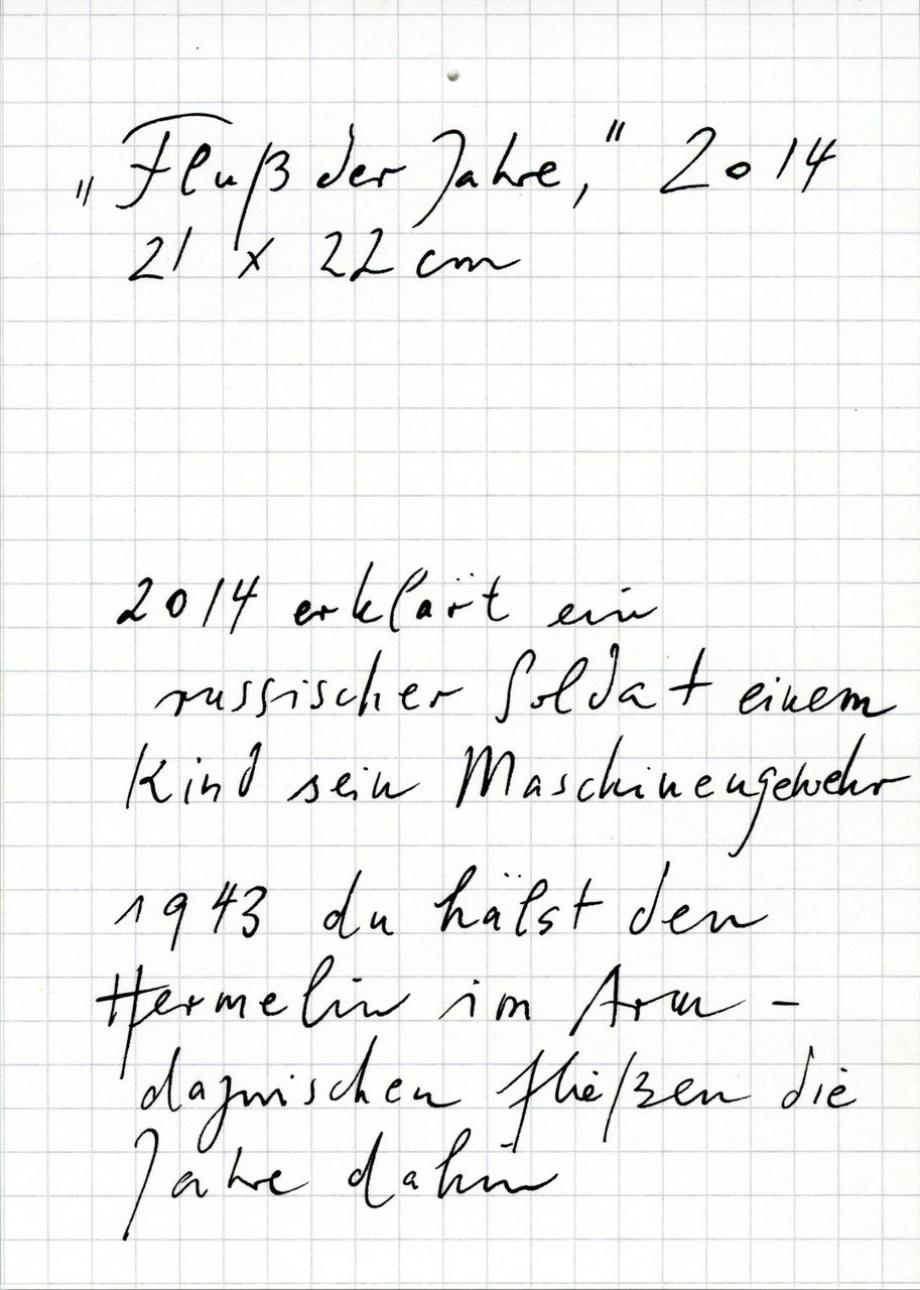 „Fluß der Jahre," 2014
21 x 22 cm
2014 erklärt ein
russischer Soldat einem
Kind sein Maschinengewehr
1943 du hälst den
Hermelin im Arm –
dazwischen fließen die
Jahre dahin